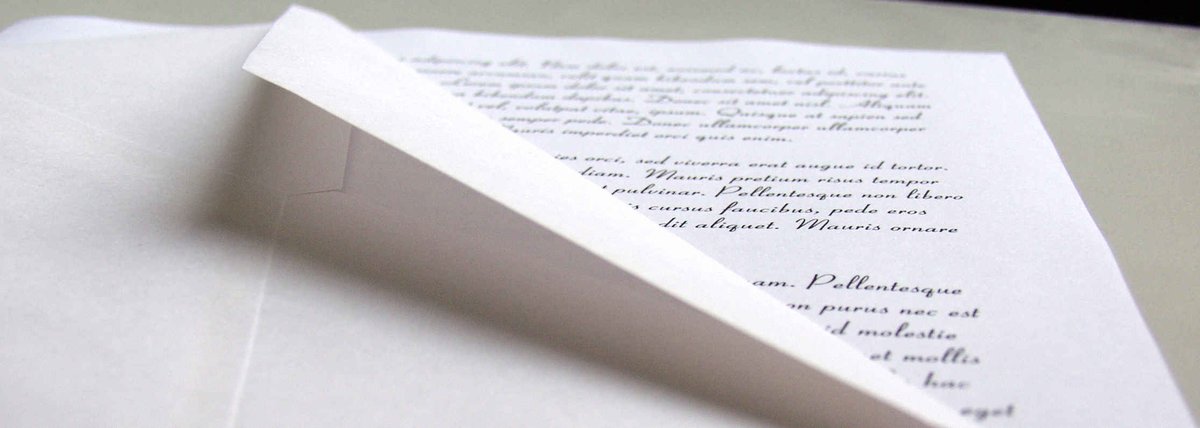 adipiscing elit. Nunc dolor est, euismod ac, luctus id, varius
accumsan, velit quam bibendum sem, vel porttitor ante
ipsum dolor sit amet, consectetuer adipiscing elit.
bibendum dapibus. Donec sit amet nisl. Aliquam
vel, volutpat vitae, ipsum. Quisque at sapien sed
semper pede. Donec ullamcorper ullamcorper
Mauris imperdiet orci quis enim.
orci, sed viverra erat augue id tortor.
diam. Mauris pretium risus tempor
pulvinar. Pellentesque non libero
cursus faucibus, pede eros
dit aliquet. Mauris ornare
am. Pellentesque
on purus nec est
id molestie
et mollis
hac
eget